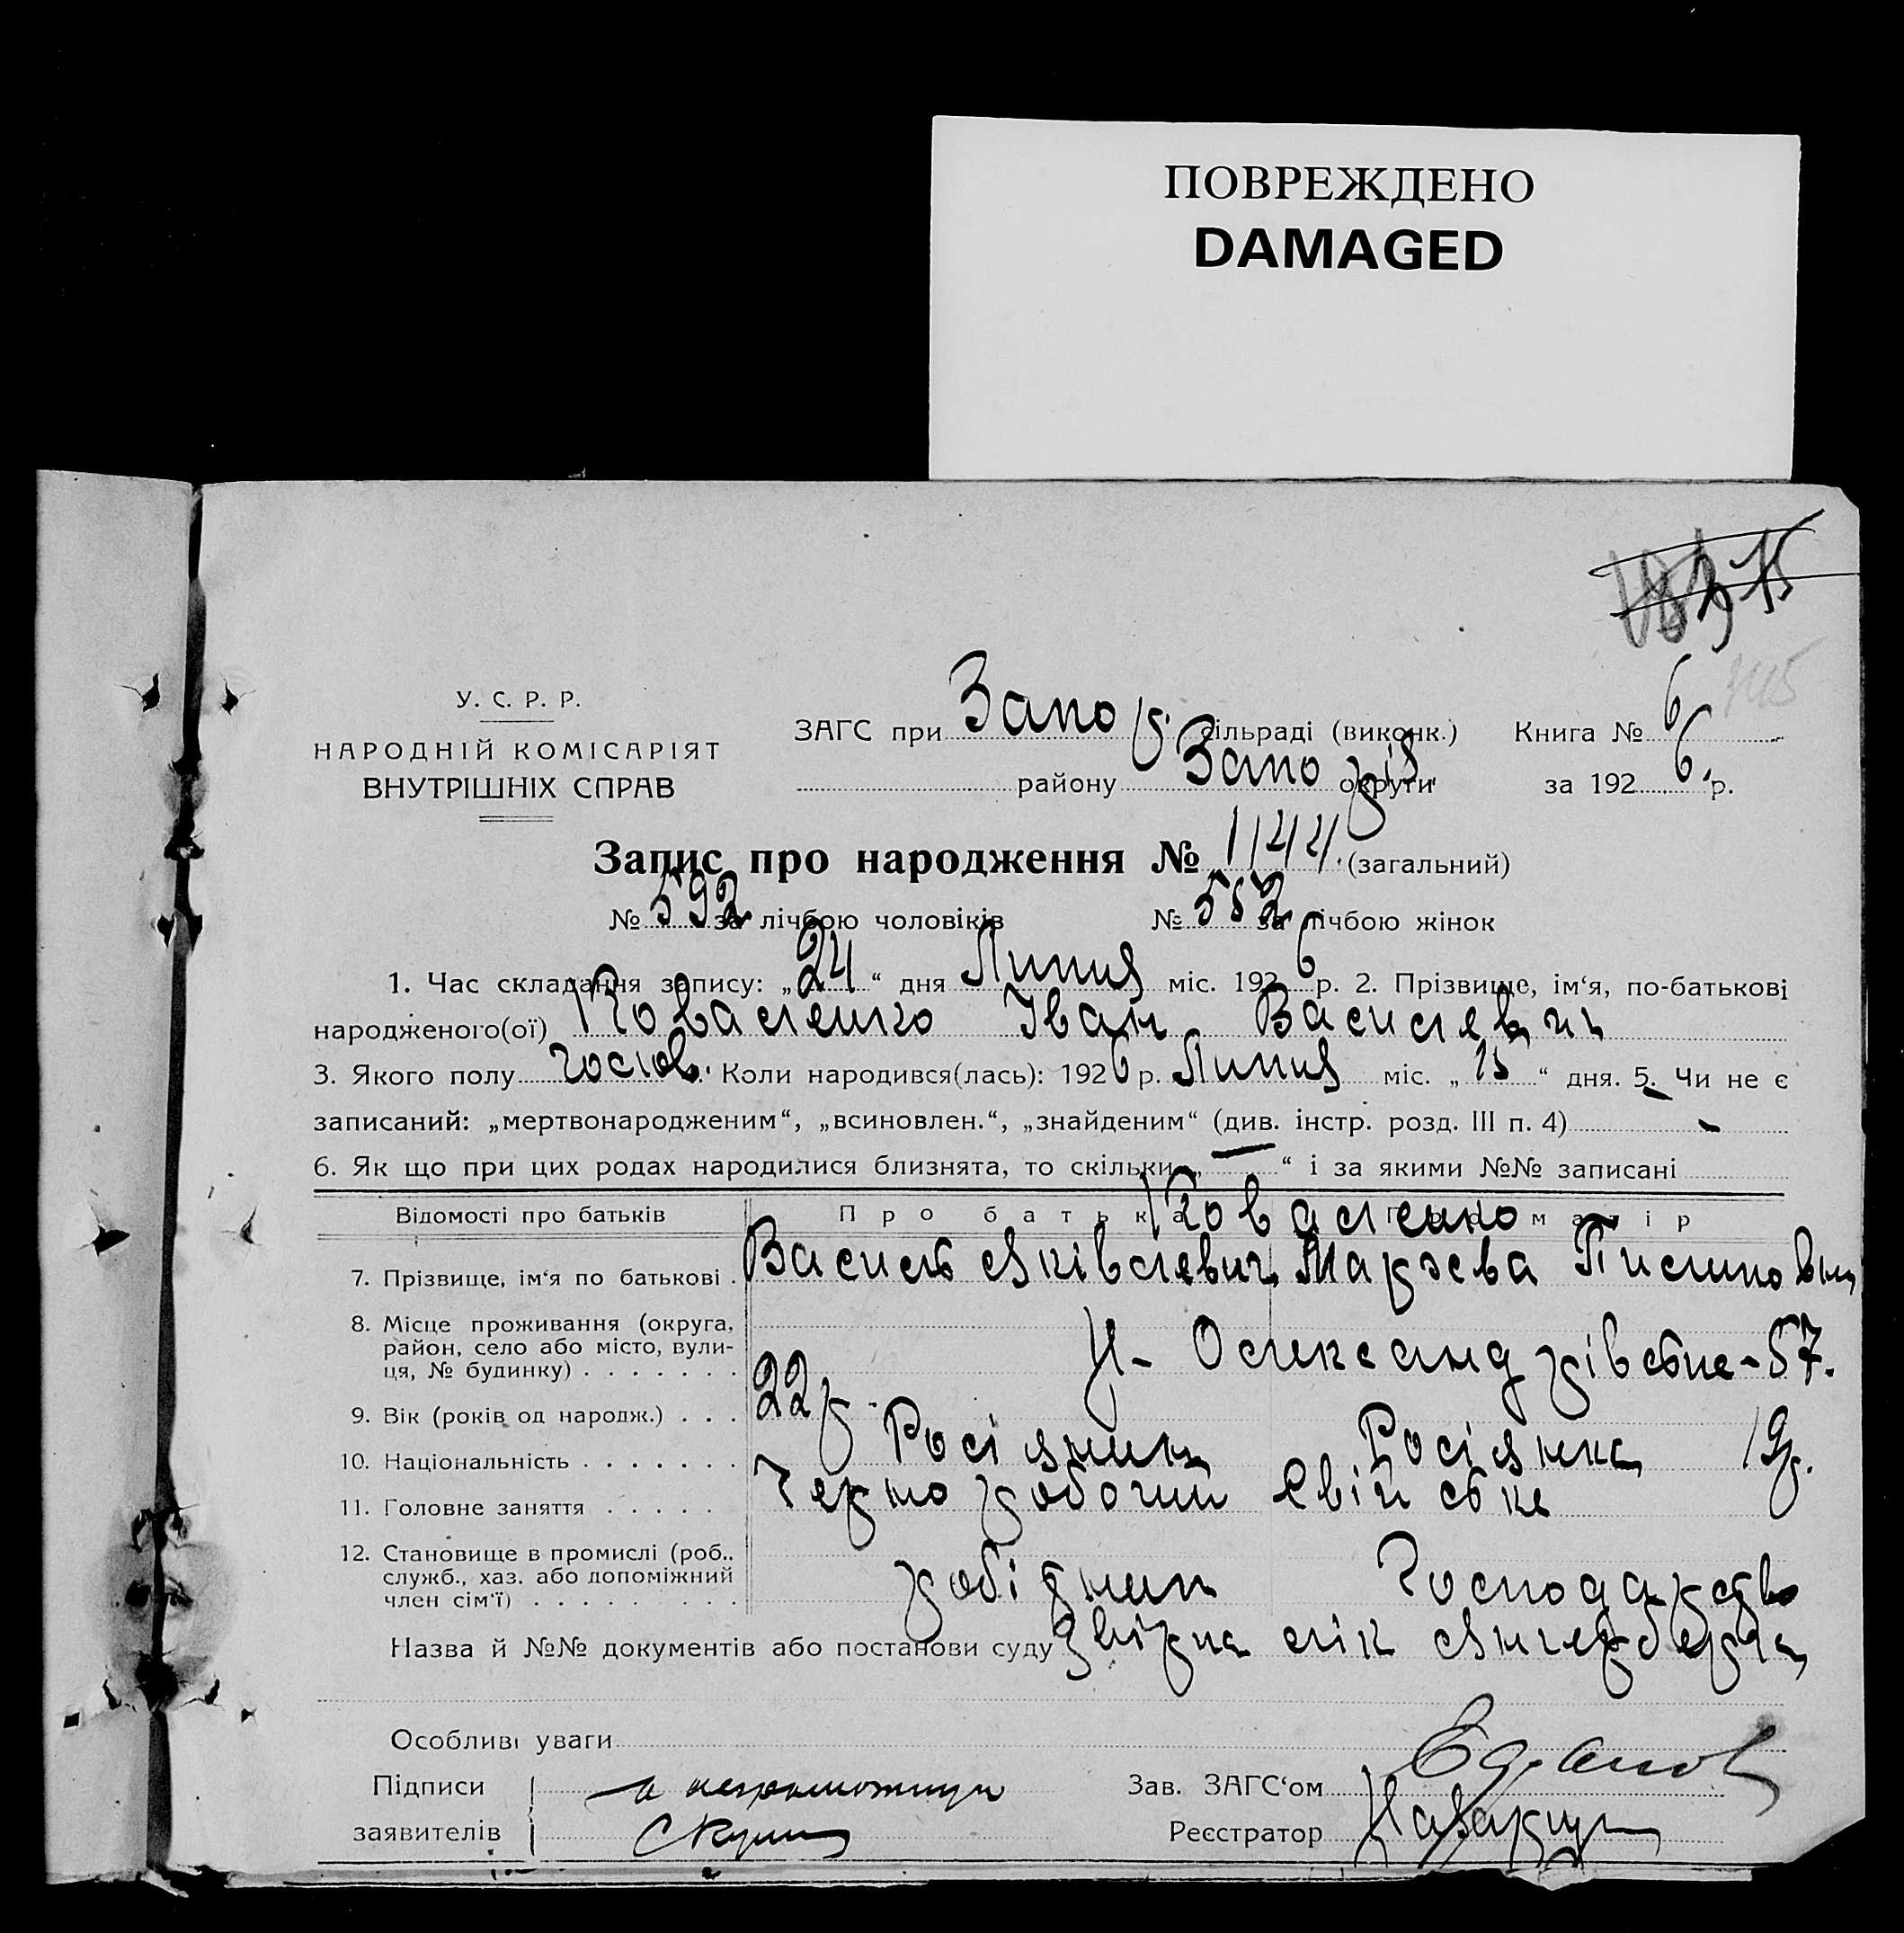 ПОВРЕЖДЕНО
DAMAGED
У. С. Р. Р.
НАРОДНІЙ КОМІСАРІЯТ
ВНУТРІШНІХ СПРАВ
ЗАГС при Запо сільраді (виконк.) Книга № 6
району Запоріз. округи за 1926 р.
Запис про народження № 1144. (загальний)
№ 592 за лічбою чоловіків № 552 за лічбою жінок
1. Час складання запису: „24“ дня Липня міс. 1926 р. 2. Прізвище, ім‘я, по-батькові
народженого(ої) Коваленко Іван Василєвич
3. Якого полу чолов. Коли народився(лась): 1926 р. Липня міс. „15“ дня. 5. Чи не є
записаний: „мертвонародженим“, „всиновлен.“, „знайденим“ (див. інстр. розд. III п. 4) -
6. Як що при цих родах народилися близнята, то скільки „—“ і за якими №№ записані
Відомості про батьків Про батька Про матір
Коваленко
7. Прізвище, ім‘я по батькові . Василь Яківлевич
8. Місце проживання (округа, район, село або місто, вулиця, № будинку) . . . . . . . Олександрівське - 57.
9. Вік (років од народж.) . . . 22 р. 19 р.
10. Національність . . . . . . . Росіянин Росіянка
11. Головне заняття . . . . . Чернорабочий Свійське
12. Становище в промислі (роб.. служб., хаз. або допоміжний член сім‘ї) . . . . . . . . . робітник Господарство
Назва й №№ документів або постанови суду
Особливі уваги
Підписи
заявителів
Зав. ЗАГС‘ом
Реєстратор